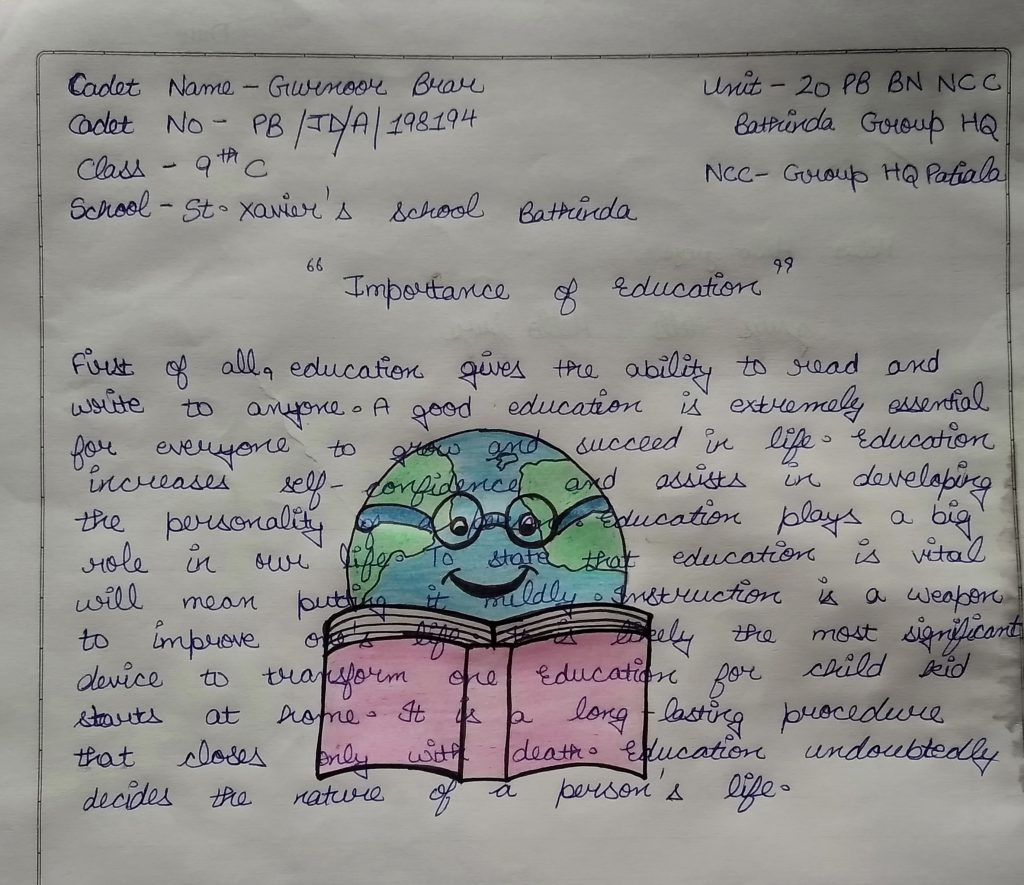 Cadet Name - Gurnoor Brar
Unit - 20 PB BN NCC
Cadet No - PB/JD/A/198194
Bathinda Group HQ
Class - 9th C
NCC - Group HQ Patiala
School - St. Xavier's School Bathinda
"Importance of Education"
First of all, education gives the ability to read and
write to anyone. A good education is extremely essential
for everyone to grow and succeed in life. Education
increases self-confidence and assists in developing
the personality of a person. Education plays a big
role in our life. To state that education is vital
will mean putting it mildly. Instruction is a weapon
to improve one's life. It is likely the most significant
device to transform one Education for child kid
starts at home. It is a long-lasting procedure
that closes only with death. Education undoubtedly
decides the nature of a person's life.